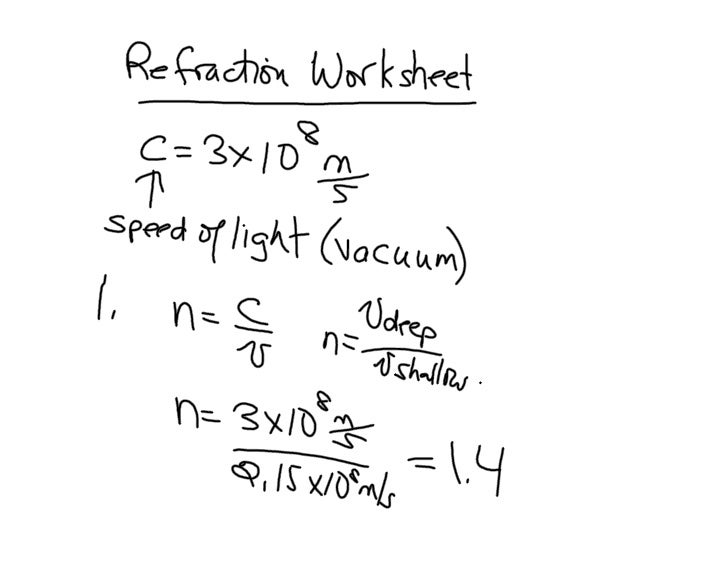 Refraction Worksheet
C = 3×10⁸ m/s
↑
speed of light (vacuum)
1. n = C/v n = Vdeep/Vshallow.
n = 3×10⁸ m/s / 2.15×10⁸ m/s = 1.4